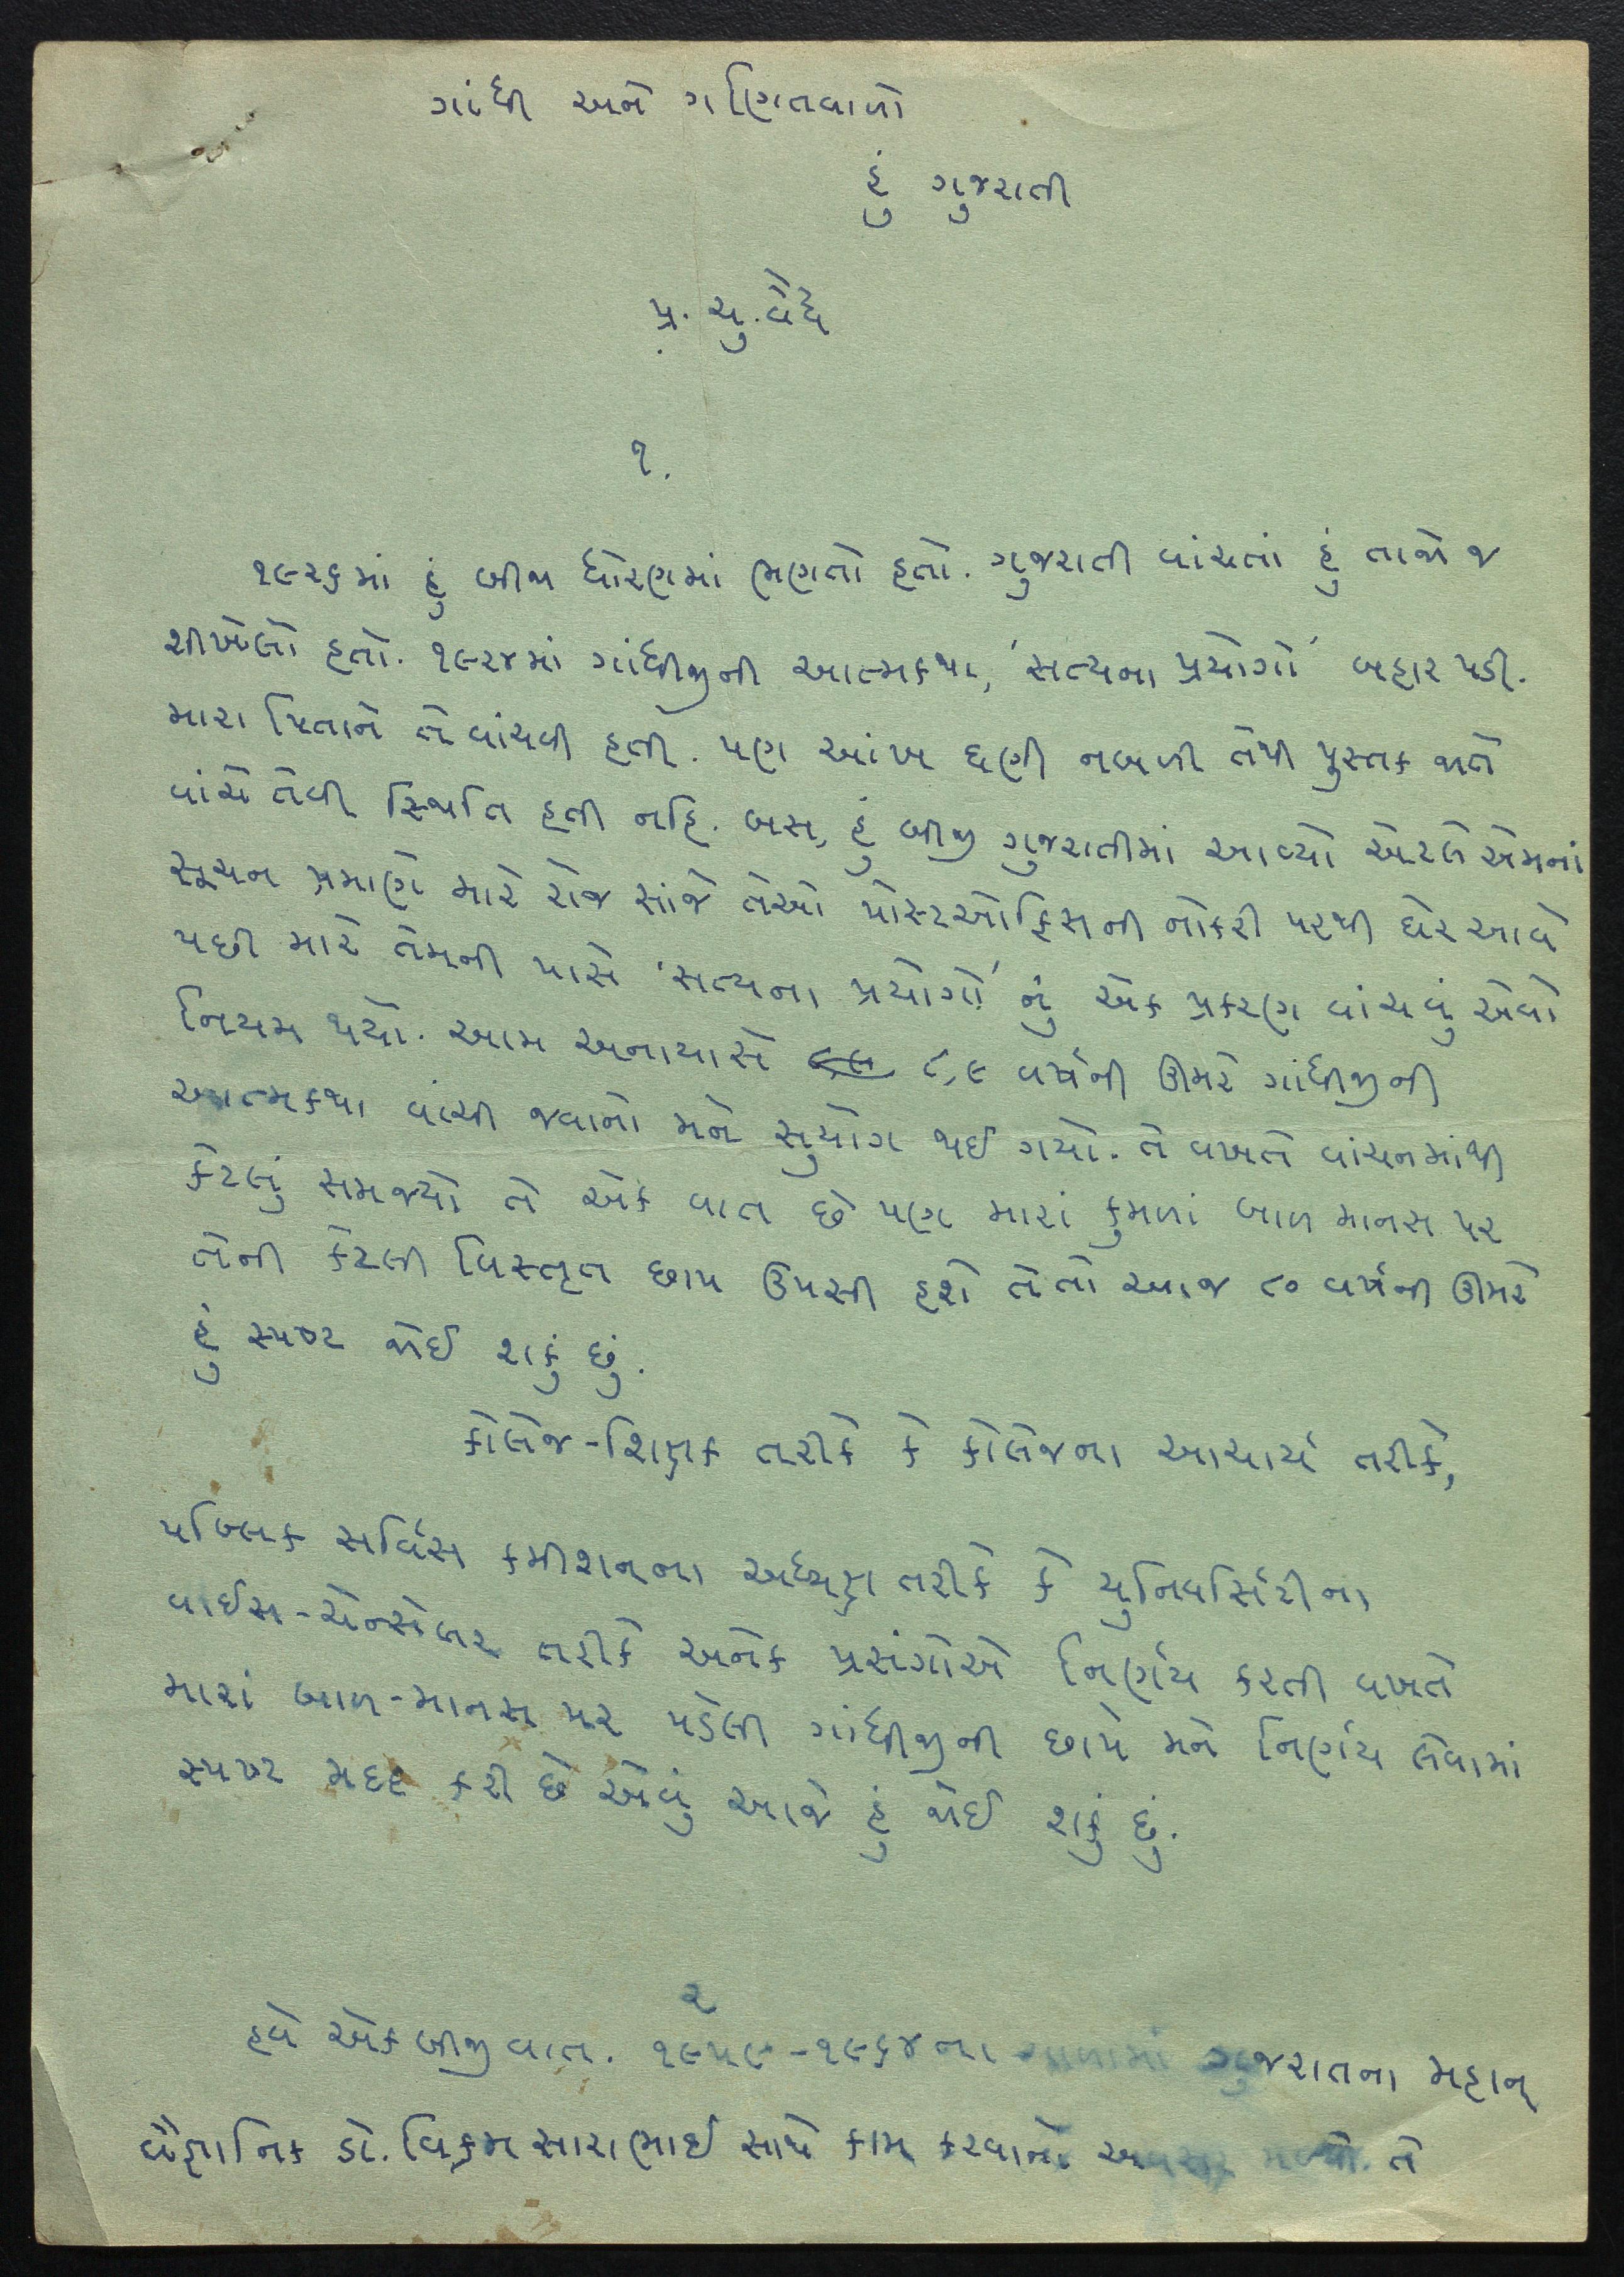 ગાંધી અને ગણિતવાળો
હું ગુજરાતી
પ્ર. ચુ. વૈદ્ય
૧.
૧૯૨૬માં હું બીજા ધોરણમાં ભણતો હતો. ગુજરાતી વાંચતાં હું તાજો જ
શીખેલો હતો. ૧૯૨૪માં ગાંધીજીની આત્મકથા, 'સત્યના પ્રયોગો' બહાર પડી.
મારા પિતાને તે વાંચવી હતી. પણ આંખ ઘણી નબળી તેથી પુસ્તક જાતે
વાંચે તેવી સ્થિતિ હતી નહિ. બસ, હું બીજી ગુજરાતીમાં આવ્યો એટલે એમનાં
સૂચન પ્રમાણે મારે રોજ સાંજે તેઓ પોસ્ટઓફિસની નોકરી પરથી ઘેર આવે
પછી મારે તેમની પાસે 'સત્યના પ્રયોગો' નું એક પ્રકરણ વાંચવું એવો
નિયમ થયો. આમ અનાયાસે ૮,૯ વર્ષની ઊમરે ગાંધીજીની
આત્મકથા વાંચી જવાનો મને સુયોગ થઈ ગયો. તે વખતે વાંચનમાંથી
કેટલું સમજ્યો તે એક વાત છે પણ મારાં કુમળાં બાળ માનસ પર
તેની કેટલી વિસ્તૃત છાપ ઉપસી હશે તે તો આજ ૮૦ વર્ષની ઊમરે
હું સ્પષ્ટ જોઈ શકું છું.
કોલેજ-શિક્ષક તરીકે કે કોલેજના આચાર્ય તરીકે,
પબ્લિક સર્વિસ કમીશનના અધ્યક્ષ તરીકે કે યુનિવર્સિટીના
વાઈસ-ચેન્સેલર તરીકે અનેક પ્રસંગોએ નિર્ણય કરતી વખતે
મારાં બાળ-માનસ પર પડેલી ગાંધીજીની છાપે મને નિર્ણય લેવામાં
સ્પષ્ટ મદદ કરી છે એવું આજે હું જોઈ શકું છું.
૨
હવે એક બીજી વાત. ૧૯૫૯-૧૯૬૪ના ગાળામાં ગુજરાતના મહાન્
વૈજ્ઞાનિક ડો. વિક્રમ સારાભાઈ સાથે કામ કરવાનો અવસર મળ્યો. તે